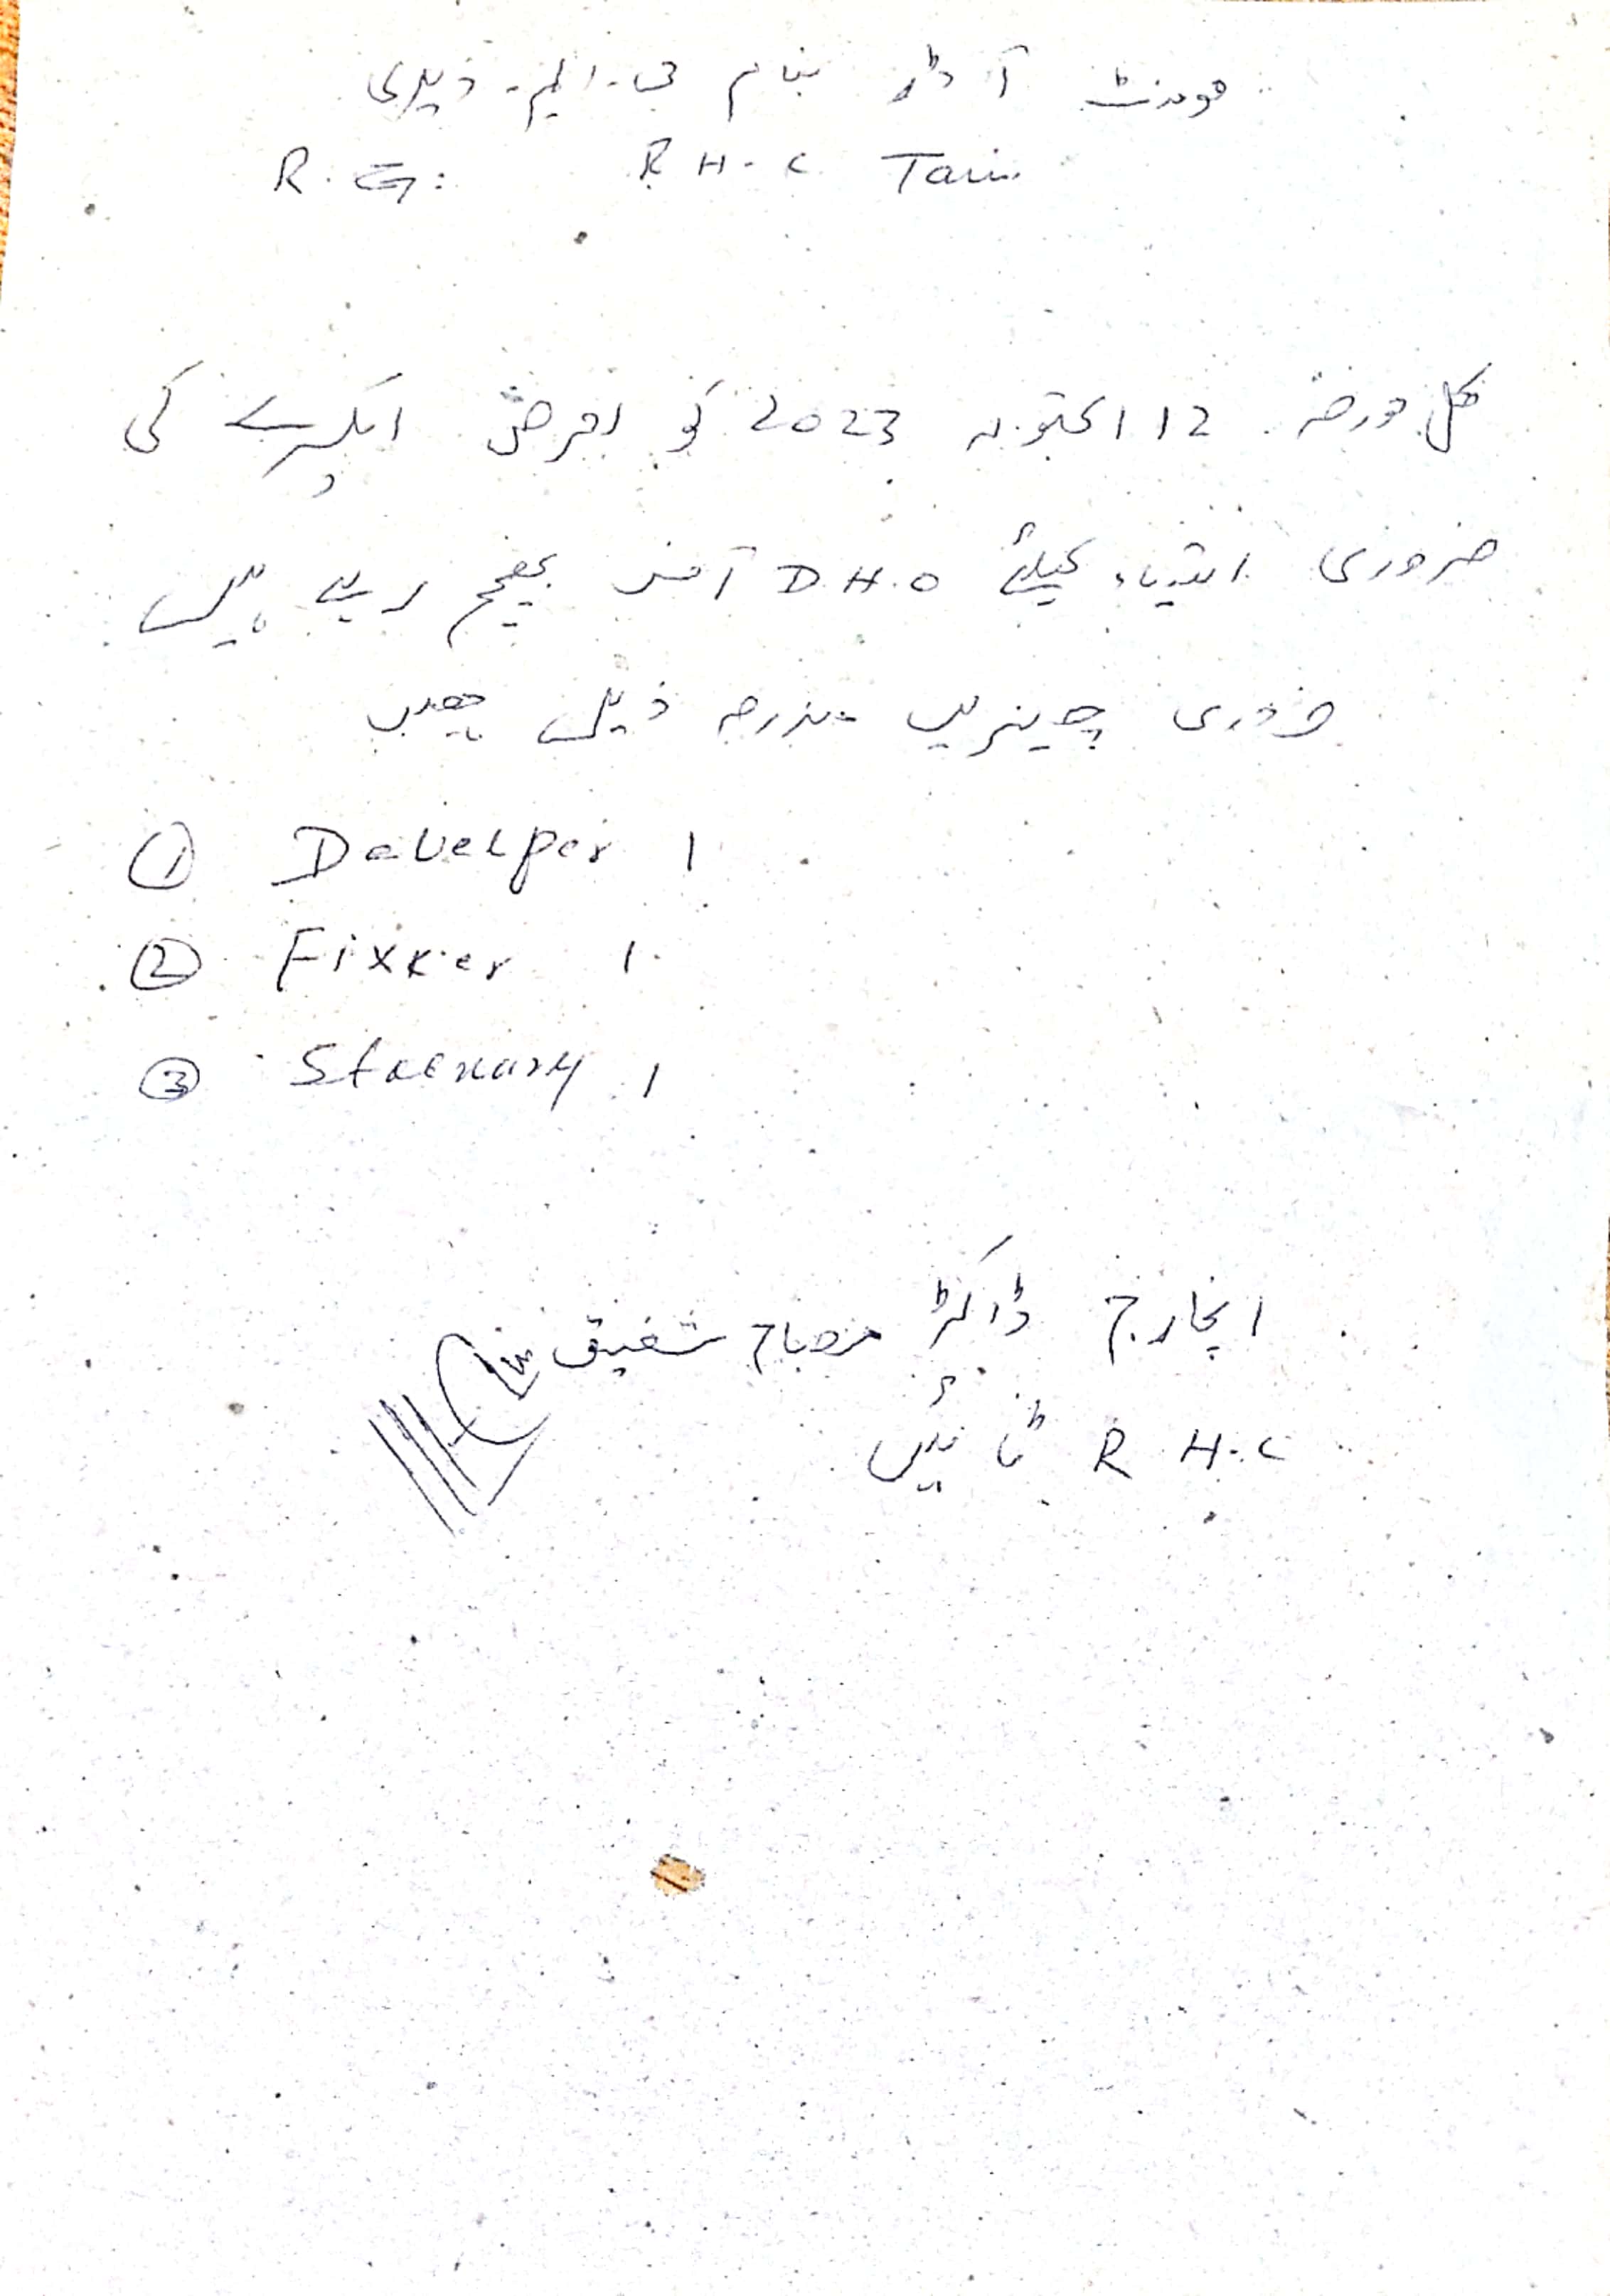 موومنٹ آرڈر بنام جی۔ایم۔ ڈیلری
R.G: R H.C Tain
کل مورخہ 12 اکتوبر 2023 کو بغرض ایکسرے کی
ضروری اشیاء کیلئے D.H.O آفس بھیج رہے ہیں
ضروری چیزیں مندرجہ ذیل ہیں
① Develper 1
② Fixxer 1
③ 1
انچارج ڈاکٹر مصباح شفیق
R H.C ٹائیں